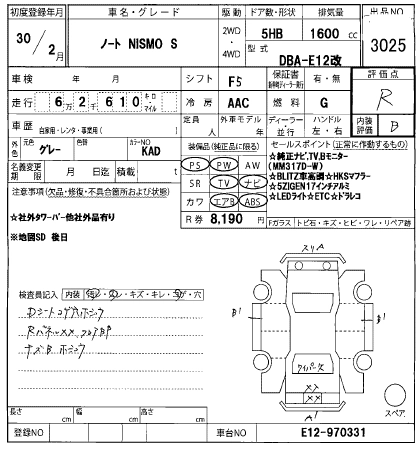 初度登録年月 車名・グレード 駆動 ドア数・形状 排気量 出品NO
30年 2月 ノート NISMO S 2WD・4WD 5HB 1600 cc 3025
型式 DBA-E12改
車検 年 月 シフト F5 保証書 有・無 評価点 R
走行 6万2千610 キロ・マイル 冷房 AAC 燃料 G
定員 人 外車モデル 年 ディーラー・並行 ハンドル 左・右 内装評価 B
車歴 自家用・レンタ・事業用( )
外色 元色 グレー 色替 カラーNO KAD
名義変更期限 月 日迄 積載 t
装備品(純正品に限る) セールスポイント(正常に作動するもの)
PS PW AW
SR TV ナビ
カワ エアB ABS
R券 8,190 円
☆純正ナビ,TV,Bモニター
(MM317D-W)
☆BLITZ車高調☆HKSマフラー
☆5ZIGEN17インチアルミ
☆LEDライト☆ETC☆ドラレコ
注意事項(欠品・修復・不具合箇所および状態)
☆社外タワーバー他社外品有り
※地図SD 後日
Fガラス トビ石・キズ・ヒビ・ワレ・リペア跡
検査員記入 内装
スリA
B1 B1
ワイパーキズ
XX
XX
A1
スペア
長さ cm 幅 cm 高さ cm
登録NO 車台NO E12-970331